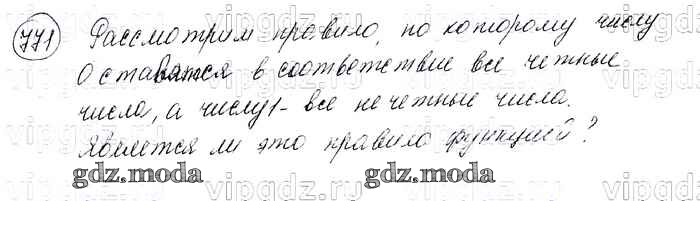 771 Рассмотрим правило, по которому числу
0 ставятся в соответствие все четные
числа, а числу 1 - все нечетные числа.
Является ли это правило функцией?
gdz.moda gdz.moda
vipgdz.ru vipgdz.ru vipgdz.ru